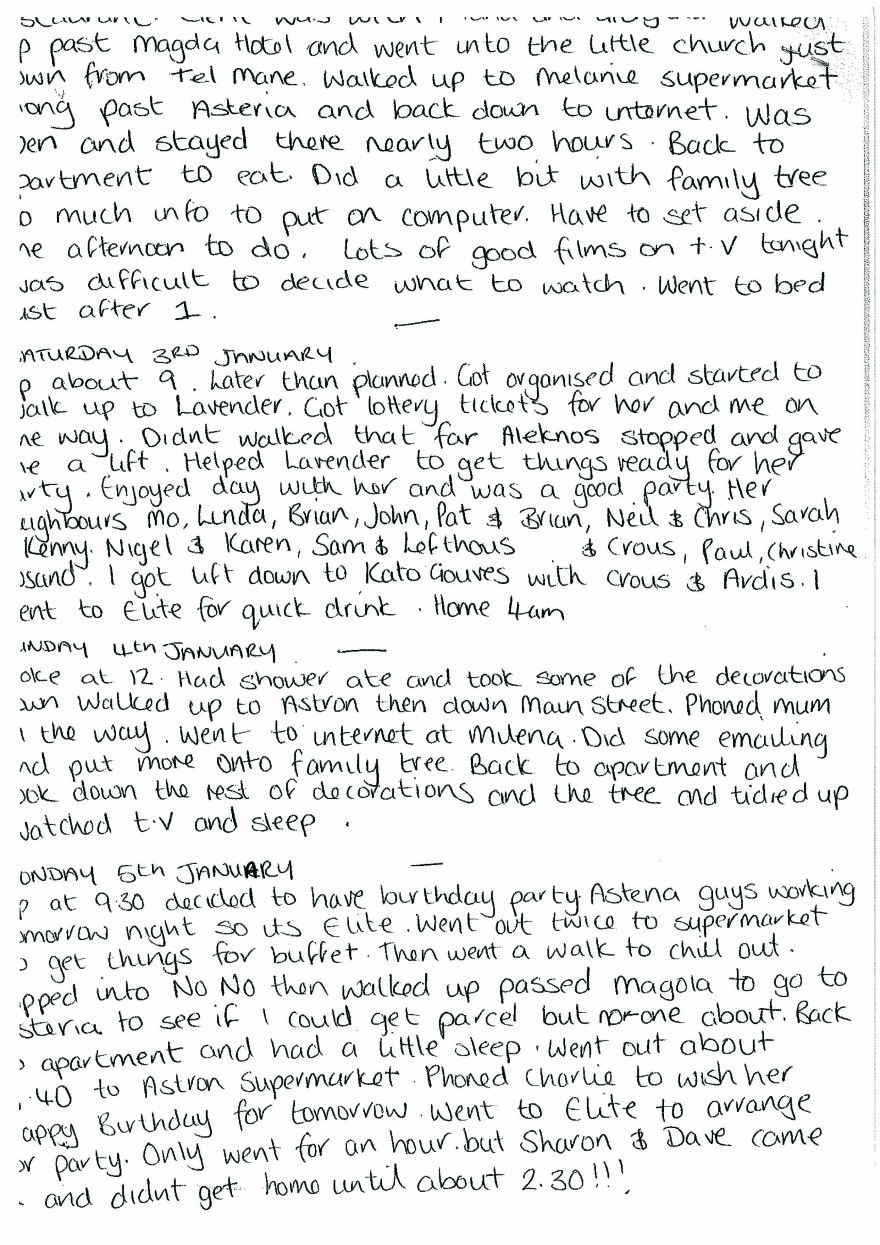 walked
p past Magda Hotel and went into the little church just
own from Tel Mane. Walked up to Melanie supermarket
ong past Asteria and back down to internet. Was
en and stayed there nearly two hours. Back to
partment to eat. Did a little bit with family tree
o much info to put on computer. Have to set aside.
ne afternoon to do. Lots of good films on t.v tonight
was difficult to decide what to watch. Went to bed
ust after 1.
ATURDAY 3RD JANUARY.
p about 9. Later than planned. Got organised and started to
walk up to Lavender. Got lottery tickets for her and me on
he way. Didnt walked that far Aleknos stopped and gave
e a lift. Helped Lavender to get things ready for her
arty. Enjoyed day with her and was a good party. Her
eighbours Mo, Linda, Brian, John, Pat & Brian, Neil & Chris, Sarah
Kenny. Nigel & Karen, Sam & Lofthous & Crous, Paul, Christine
I got lift down to Kato Gouves with Crous & Ardis. I
ent to Elite for quick drink. Home 4am
UNDAY 4th JANUARY
oke at 12. Had shower ate and took some of the decorations
own Walked up to Astron then down Main Street. Phoned mum
the way. Went to internet at Milena. Did some emailing
nd put more onto family tree. Back to apartment and
ook down the rest of decorations and the tree and tidied up
Watched t.v and sleep.
ONDAY 5th JANUARY
p at 9.30 decided to have birthday party Asteria guys working
omorrow night so its Elite. Went out twice to supermarket
o get things for buffet. Then went a walk to chill out.
pped into No No then walked up passed Magda to go to
steria to see if I could get parcel but no-one about. Back
apartment and had a little sleep. Went out about
.40 to Astron Supermarket. Phoned Charlie to wish her
appy Birthday for tomorrow. Went to Elite to arrange
or party. Only went for an hour.but Sharon & Dave came
and didnt get home until about 2.30!!!